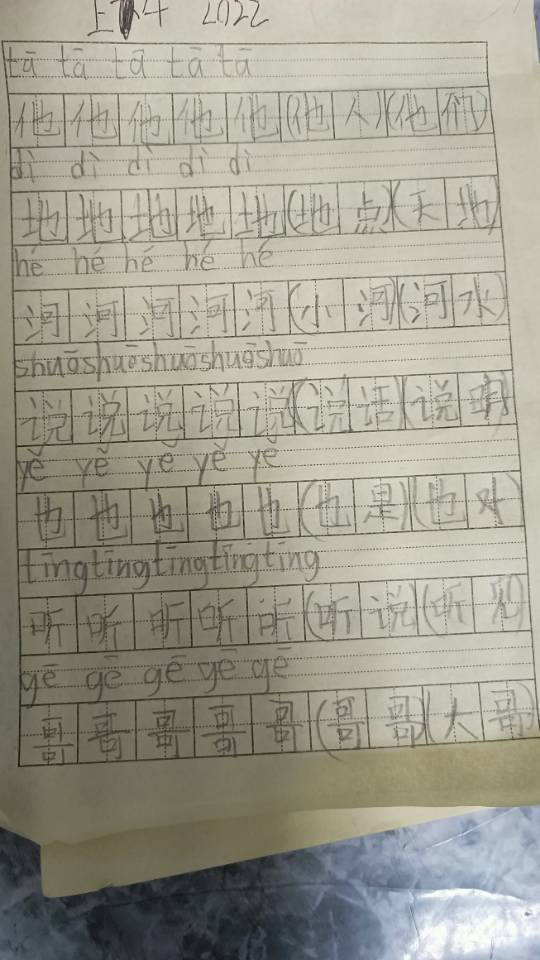 2022
tā tā tā tā tā
他 他 他 他 他 (他 人) (他 们)
dì dì dì dì dì
地 地 地 地 地 (地 点) (天 地)
hé hé hé hé hé
河 河 河 河 河 (小 河) (河 水)
shuō shuō shuō shuō shuō
说 说 说 说 说 (说 话) (说 明)
yě yě yě yě yě
也 也 也 也 也 (也 是) (也 对)
tīng tīng tīng tīng tīng
听 听 听 听 听 (听 说) (听 见)
gē gē gē gē gē
哥 哥 哥 哥 哥 (哥 哥) (大 哥)